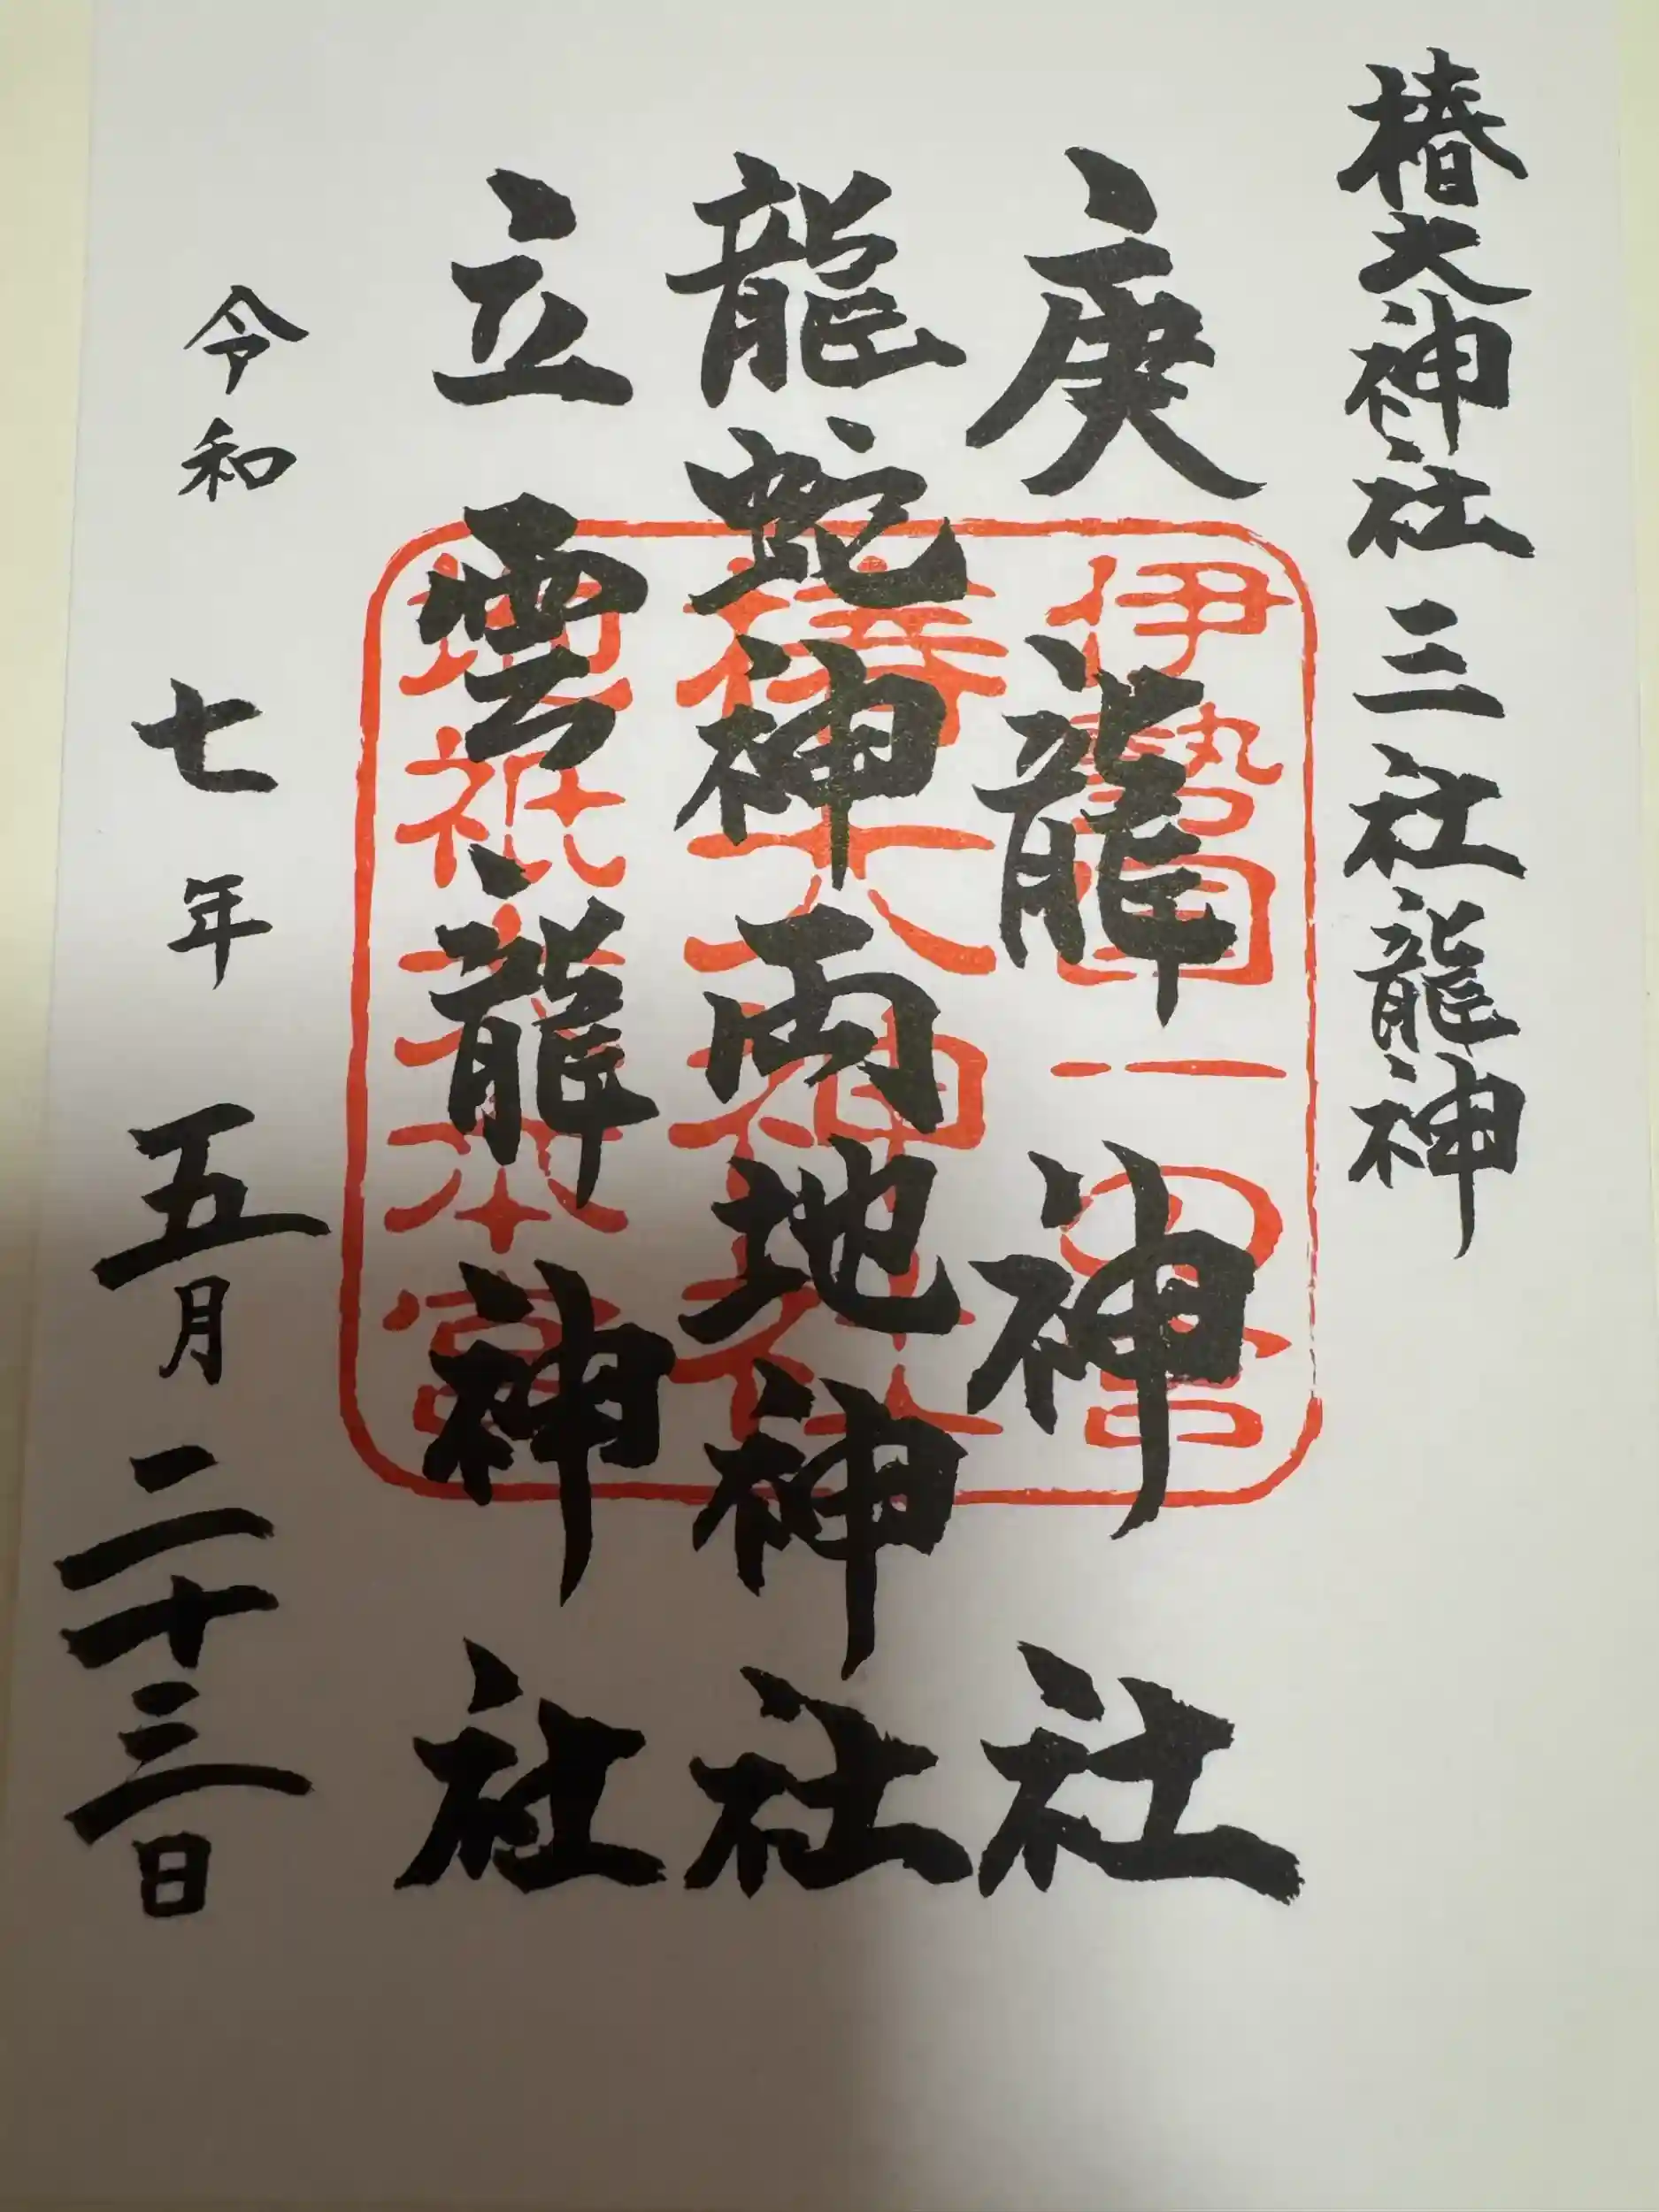 椿大神社 三社龍神
庚龍神社
龍蛇神両地神社
立雲龍神社
伊勢国一の宮
椿大神社
地祇大本宮
令和七年五月二十三日